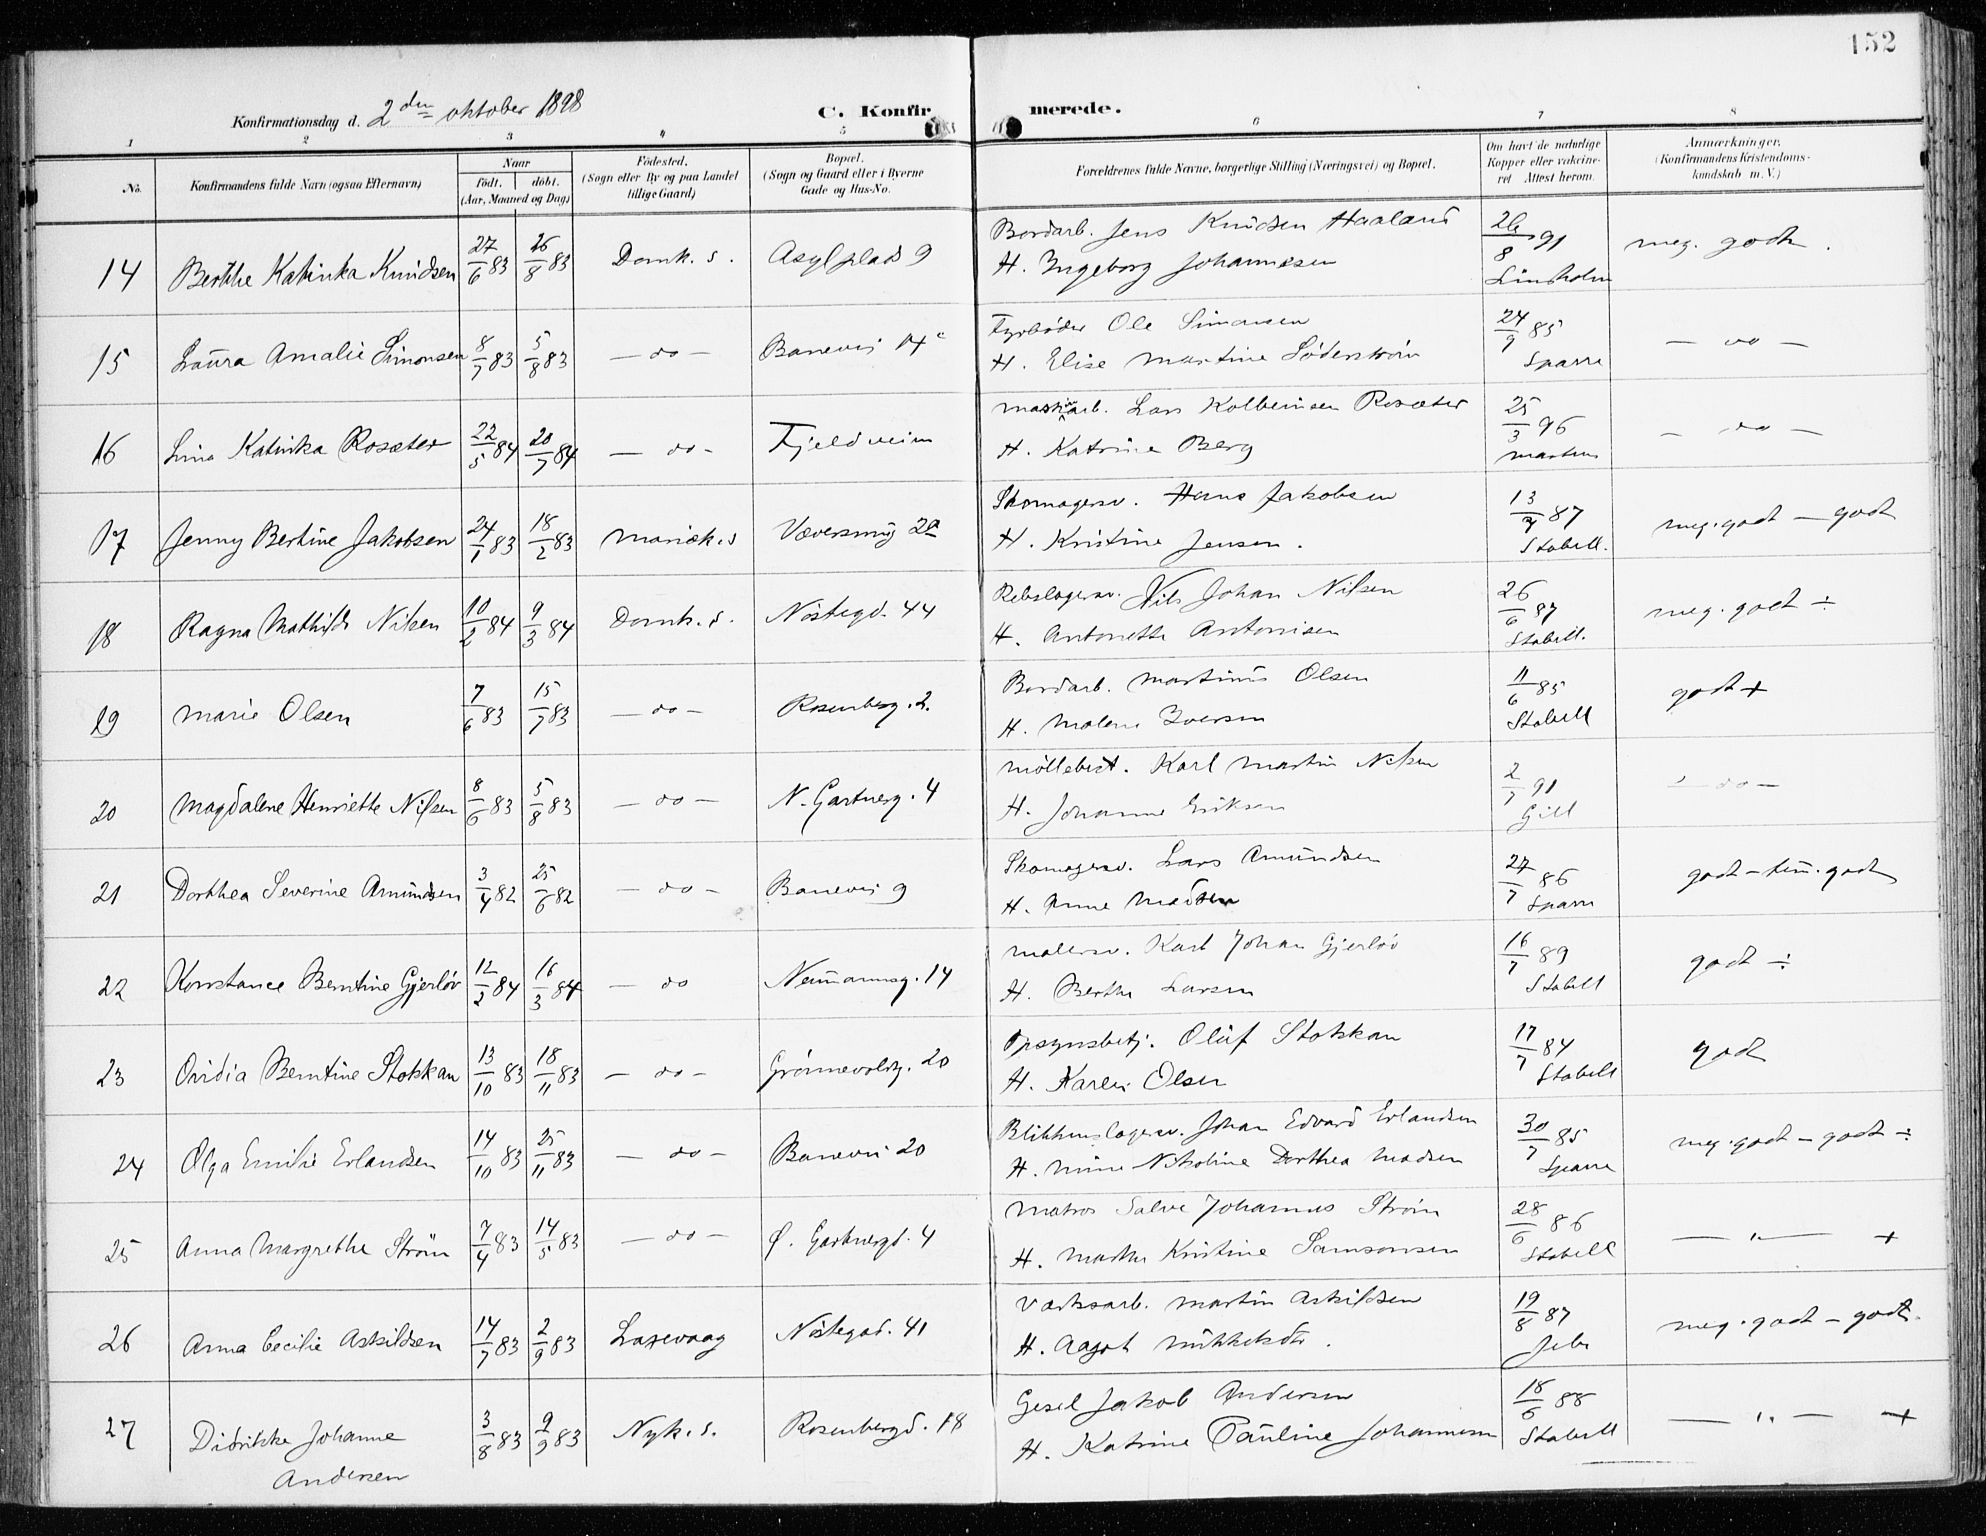 152
Konfirmationsdag d. 2den oktober 1898
C. Konfirmerede.
1 2 3 4 5 6 7 8
No.
Konfirmandens fulde Navn (ogsaa Efternavn)
Naar
født. døbt.
(Aar, Maaned og Dag)
Fødested.
(Sogn eller By og paa Landet
tillige Gaard)
Bopæl.
(Sogn og Gaard eller i Byerne
Gade og Hus-No.
Forældrenes fulde Navne, borgerlige Stilling (Næringsvei) og Bopæl.
Om havt de naturlige
Kopper eller vakcine-
ret Attest herom.
Anmærkninger.
(Konfirmandens Kristendoms-
kundskab m. V.)
14 Berthe Katinka Knudsen 27/6 83 26/8 83 Domk. s. Asylplads 9
Bordarb. Jens Knudsen Haaland
H. Ingeborg Johannesen
26/8 91
Lindholm
meg. godt.
15 Laura Amalie Simonsen 8/7 83 5/8 83 — do — Banevei 14c
Fyrbøder Ole Simonsen
H. Elise Martine Söderström
24/9 85
Sparre
— do —
16 Lina Katinka Rosæter 22/5 84 20/7 84 — do — Fjeldveien
Maskinarb. Lars Kolbeinsen Rosæter
H. Katrine Berg
25/3 96
Martens
— do —
17 Jenny Bertine Jakobsen 24/1 83 18/2 83 Mariæk. s Væversmug 2a
Skomagersv. Hans Jakobsen
H. Kristine Jensen.
13/7 87
Stabell.
meg. godt — godt
18 Ragna Mathilde Nilsen 10/2 84 9/3 84 Domk. s. Nöstegd. 44
Rebslagersv. Nils Johan Nilsen
H. Antonette Antonisen
26/6 87
Stabell.
meg. godt ÷
19 Marie Olsen 7/6 83 15/7 83 — do — Rosenberg. 2.
Bordarb. Martinus Olsen
H. Malene Iversen
11/6 85
Stabell
godt +
20 Magdalene Henriette Nilsen 8/6 83 5/8 83 — do — N. Gartnerg. 4
Möllebest. Karl Martin Nilsen
H. Johanne Eriksen
2/7 91
Gill
— do —
21 Dorthea Severine Amundsen 3/4 82 25/6 82 — do — Banevei 9
Skomagersv. Lars Amundsen
H. Anne Madsen
27/7 86
Sparre
godt — tem. godt
22 Konstance Berntine Gjerløv 12/2 84 16/3 84 — do Neumannsg. 14
Malersv. Karl Johan Gjerløv
H. Berthe Larsen
16/7 89
Stabell
godt ÷
23 Ovidia Berntine Stokkan 13/10 83 18/11 83 — do — Grönnevolsg. 20
Opsynsbetj. Oluf Stokkan
H. Karen Olsen
17/7 84
Stabell
godt
24 Olga Emilie Erlandsen 14/10 83 25/11 83 — do — Banevei 20
Blikkenslagersv. Johan Edvard Erlandsen
H. Mina Nikoline Dorthea Madsen
30/7 85
Sparre
meg. godt — godt ÷
25 Anna Margrethe Ström 7/4 83 14/5 83 — do — Ø. Gartnergd. 4
Matros Salve Johannes Ström
H. Marthe Kristine Samsonsen
28/6 86
Stabell
— " — +
26 Anna Cecilie Askildsen 14/7 83 2/9 83 Laxevaag Nöstegad. 41
Værksarb. Martin Askildsen
H. Aagot Mikkelsdtr.
19/8 87
meg. godt — godt.
27 Didrikke Johanne
Andersen
3/8 83 2/9 83 Nyk. s. Rosenbergd. 18
Gesel Jakob Andersen
H. Katrine Pauline Johannesen
18/6 88
Stabell
— " — +